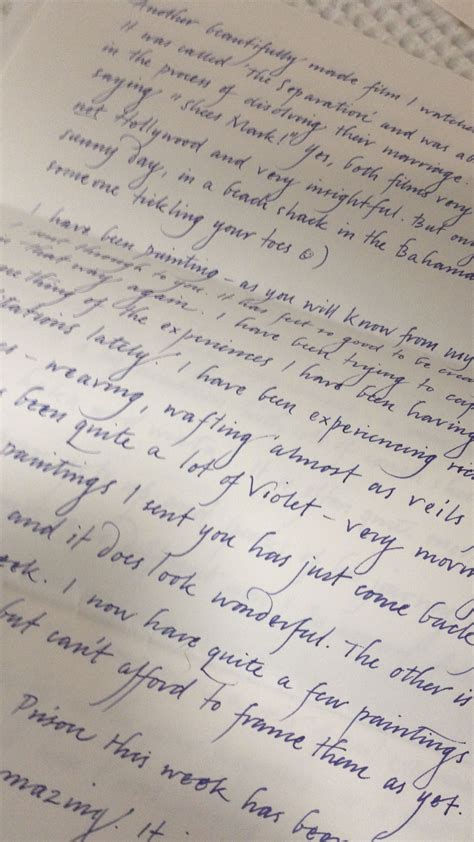 Another beautifully made film I watched
It was called 'The Separation' and was a
in the process of disolving their marriage -
saying "shees Mark!" Yes, both films very
not Hollywood and very insightful. But on
sunny day, in a beach shack in the Bahama
someone tickling your toes ☺)
I have been painting - as you will know from my
I sent through to you. It has felt so good to be crea
in that way again. I have been trying to cap
thing of the experiences I have been having
itations lately. I have been experiencing
es - weaving, wafting almost as veils,
s been quite a lot of Violet - very
paintings I sent you has just come back
and it does look wonderful. The other is
eek. I now have quite a few paintings
but can't afford to frame them as yet.
Prison this week has been
mazing! It